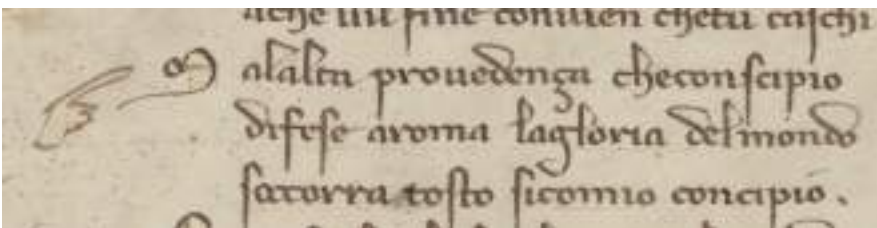 ache un fine convien chetu caschi
Malalta provedença checonscipio
difese aroma lagloria delmondo
soccorra tosto sicomio concipio.